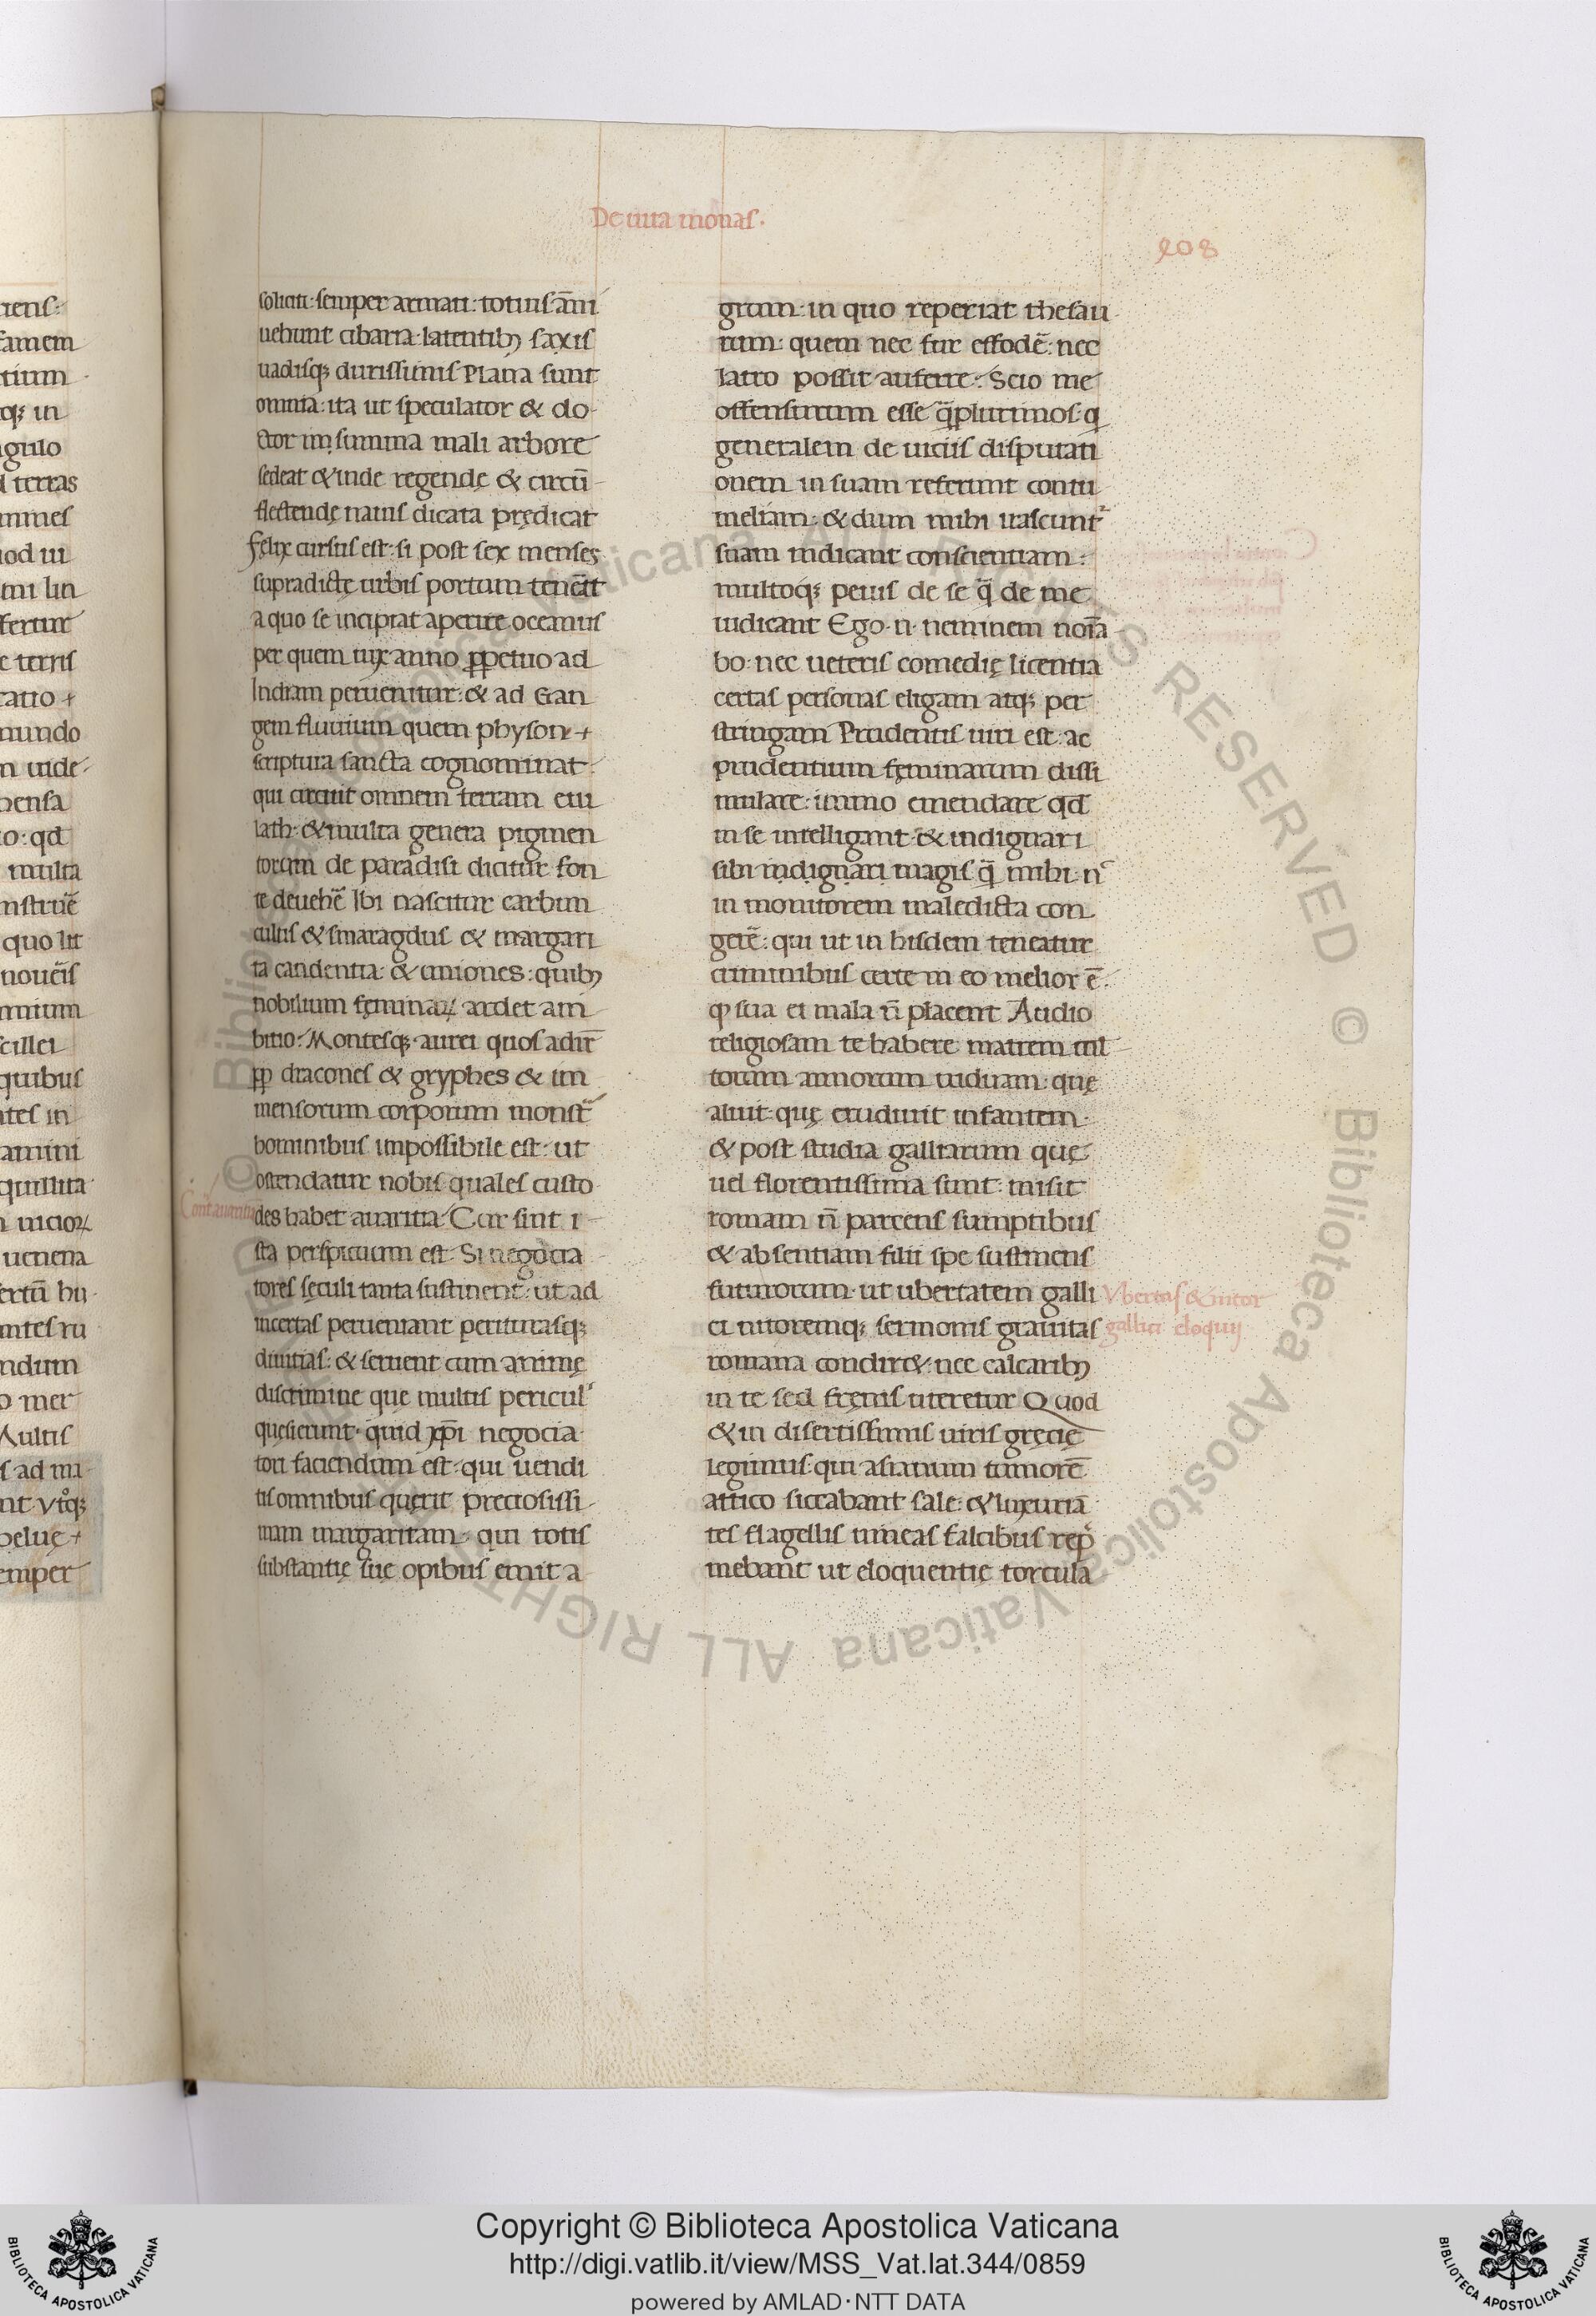 De uita monas.
408
soliciti: semper armati: totius āni
uehunt cibaria: latentibꝫ saxis
uadisqꝫ durissimis Plana sunt
omnia: ita ut speculator & do-
ctor in summa mali arbore
sedeat & inde regendę & circū-
flectendę nauis dicata prędicat
Felix cursus est: si post sex menses
supradictę urbis portum teneāt
a quo se incipiat aperire oceanus
per quem uix anno ꝑpetuo ad
Indiam peruenitur: & ad Gan
gem fluuium quem physon
scriptura sancta cognominat:
qui circuit omnem terram eui
lath: & multa genera pigmen
torum de paradisi dicitur fon
te deuehē Ibi nascitur carbun
culus & smaragdus & margari
ta candentia: & uniones: quibꝫ
nobilium feminaꝝ ardet am
bitio: Montesqꝫ aurei quos adir̄
ꝓp dracones & gryphes & im
mensorum corporum monst
hominibus impossibile est: ut
ostendatur nobis quales custo
des habet auaritia: Cur sint i-
sta perspicuum est: Si negocia
tores sęculi tanta sustinent: ut ad
incertas perueniant periturasqꝫ
diuitias: & seruent cum animę
discrimine que multis pericul
quęsierunt: quid xp̄i negocia
tori faciendum est: qui uendi
tis omnibus querit preciosissi
mam margaritam: qui totis
substantię suę opibus emit a
Cont auaritiā
grum: in quo reperiat thesau
rum: quem nec fur effodē: nec
latro possit auferre: Scio me
offensurum esse q̄plurimos: q
generalem de uiciis disputati
onem in suam referunt contu
meliam: & dum mihi irascunt
suam indicant conscientiam:
multoqꝫ peius de se q̄ de me
iudicant Ego .n. neminem noīa
bo: nec ueteris comedię licentia
certas personas eligam atqꝫ per
stringam Prudentis uiri est: ac
prudentium fęminarum dissi
mulare: immo emendare qd̄
in se intelligant: & indignari
sibi indignari magis q̄ mihi: n̄
in monitorem maledicta con
gerē: qui ut in hisdem teneatur
criminibus certe in eo melior ē:
ꝙ sua ei mala n̄ placent Audio
religiosam te habere matrem mul
torum annorum uiduam: quę
aluit: quę erudiuit infantem:
& post studia galliarum quę
uel florentissima sunt: misit
romam n̄ parcens sumptibus
& absentiam filii spe sustinens
futurorum: ut ubertatem galli
ci nitoremqꝫ sermonis grauitas
romana condiret: nec calcaribꝫ
in te sed fręnis uteretur Quod
& in disertissimis uiris gręcię
legimus: qui asianum tumorē
attico siccabant sale: & luxuriā
tes flagellis uineas falcibus rep
mebant ut eloquentię torcula
Vbertas & nitor
gallici eloquij
Copyright © Biblioteca Apostolica Vaticana
http://digi.vatlib.it/view/MSS_Vat.lat.344/0859
powered by AMLAD·NTT DATA
BIBLIOTECA APOSTOLICA VATICANA
BIBLIOTECA APOSTOLICA VATICANA
© Biblioteca Apostolica Vaticana ALL RIGHTS RESERVED © Biblioteca Apostolica Vaticana ALL RIGHTS RESERVED